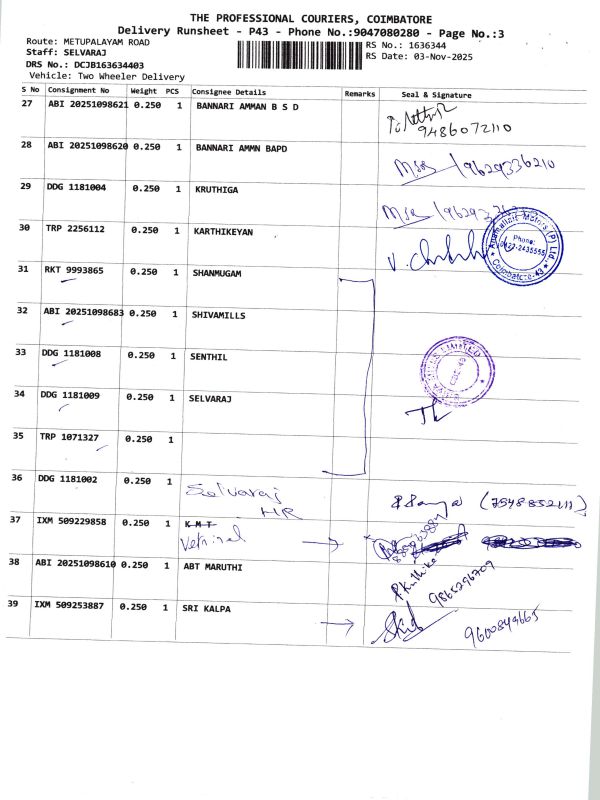 THE PROFESSIONAL COURIERS, COIMBATORE
Delivery Runsheet - P43 - Phone No.:9047080280 - Page No.:3
Route: METUPALAYAM ROAD
RS No.: 1636344
Staff: SELVARAJ
RS Date: 03-Nov-2025
DRS No.: DCJB163634403
Vehicle: Two Wheeler Delivery
S No Consignment No Weight PCS Consignee Details Remarks Seal & Signature
27 ABI 20251098621 0.250 1 BANNARI AMMAN B S D
9486072110
28 ABI 20251098620 0.250 1 BANNARI AMMN BAPD
9629336210
29 DDG 1181004 0.250 1 KRUTHIGA
30 TRP 2256112 0.250 1 KARTHIKEYAN
Phone:
0422-2435555
Coimbatore-43
31 RKT 9993865 0.250 1 SHANMUGAM
32 ABI 20251098683 0.250 1 SHIVAMILLS
33 DDG 1181008 0.250 1 SENTHIL
34 DDG 1181009 0.250 1 SELVARAJ
35 TRP 1071327 0.250 1
36 DDG 1181002 0.250 1 Selvaraj
HR
(7548852111)
37 IXM 509229858 0.250 1 KMT
38 ABI 20251098610 0.250 1 ABT MARUTHI
9865296709
39 IXM 509253887 0.250 1 SRI KALPA
9600849665